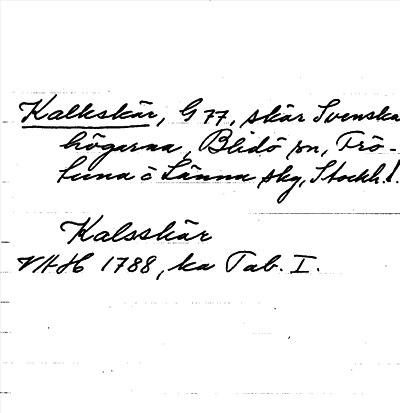 Kalkskär, G 77, skär Svenska
högarna, Blidö sn, Frö-
tuna o Länna skg, Stockh.l.
Kalsskär
VAH 1788, ka Tab. I.